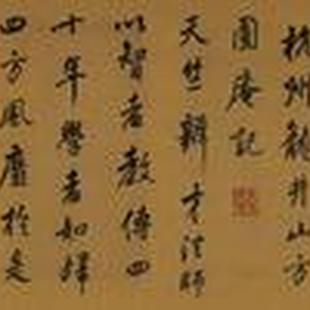 杭州龍井山方
圓庵記
天竺辯才法師
以智者教傳四
十年學者如歸
四方風靡於是